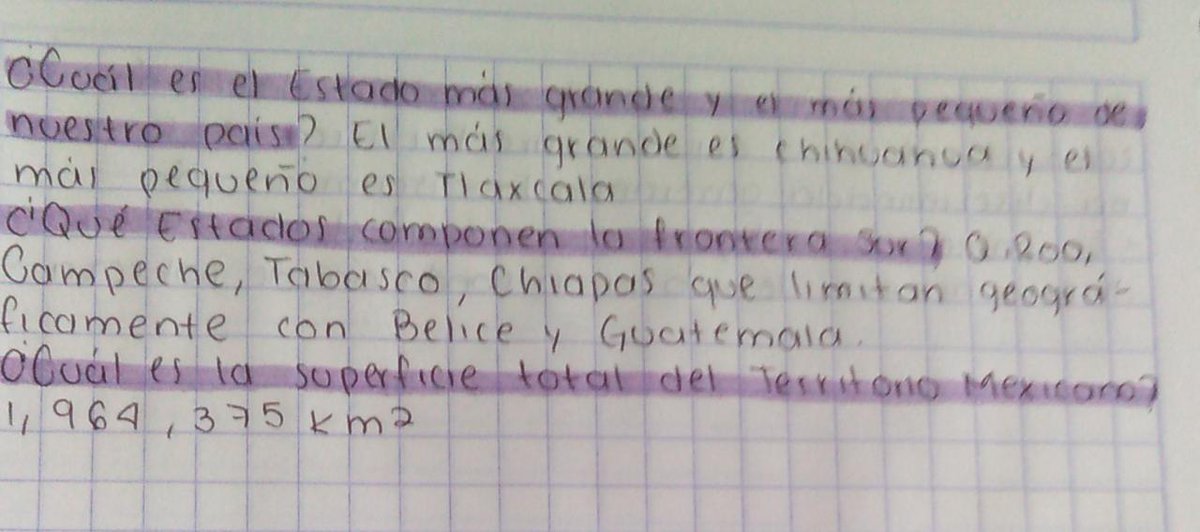 ¿Cuál es el Estado más grande y el más pequeño de
nuestro país? El más grande es chihuahua y el
más pequeño es Tlaxcala
¿Qué Estados componen la frontera sur? Q.Roo,
Campeche, Tabasco, Chiapas que limitan geográ-
ficamente con Belice y Guatemala.
¿Cuál es la superficie total del Territorio Mexicano?
1,964,375 km2